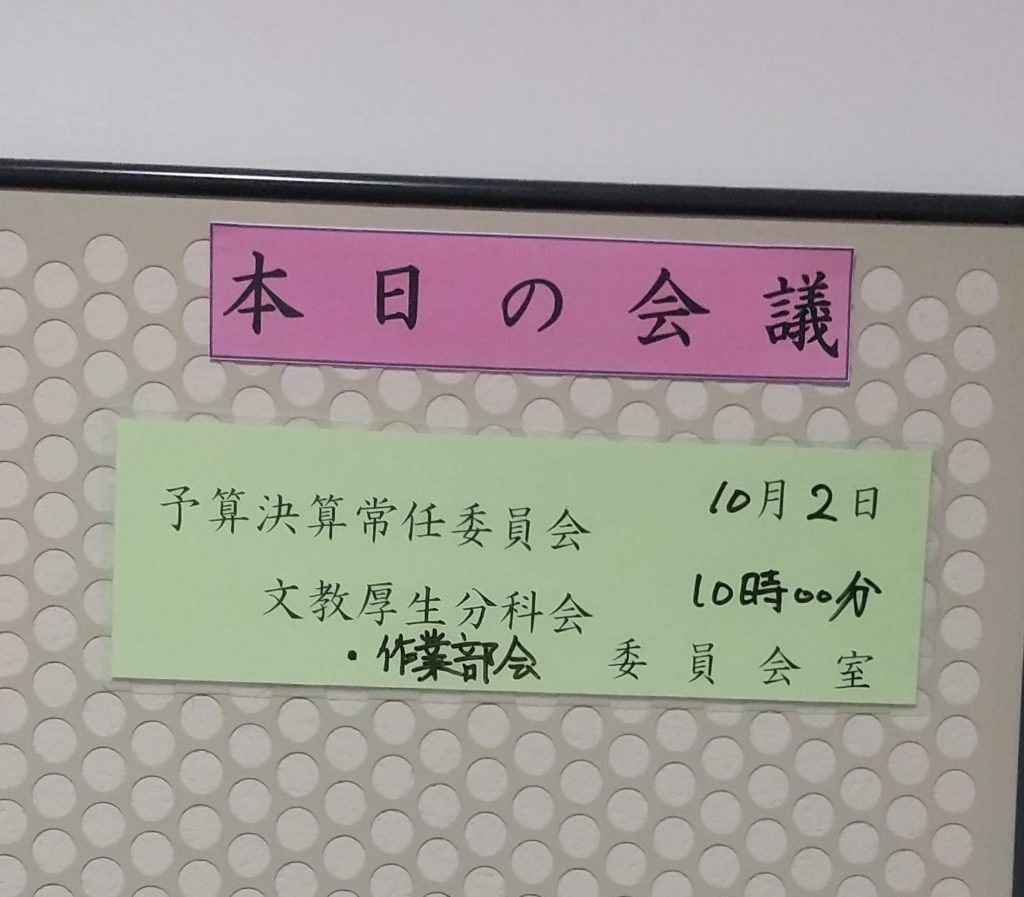 本日の会議
予算決算常任委員会 10月2日
文教厚生分科会 10時00分
・作業部会 委員会室